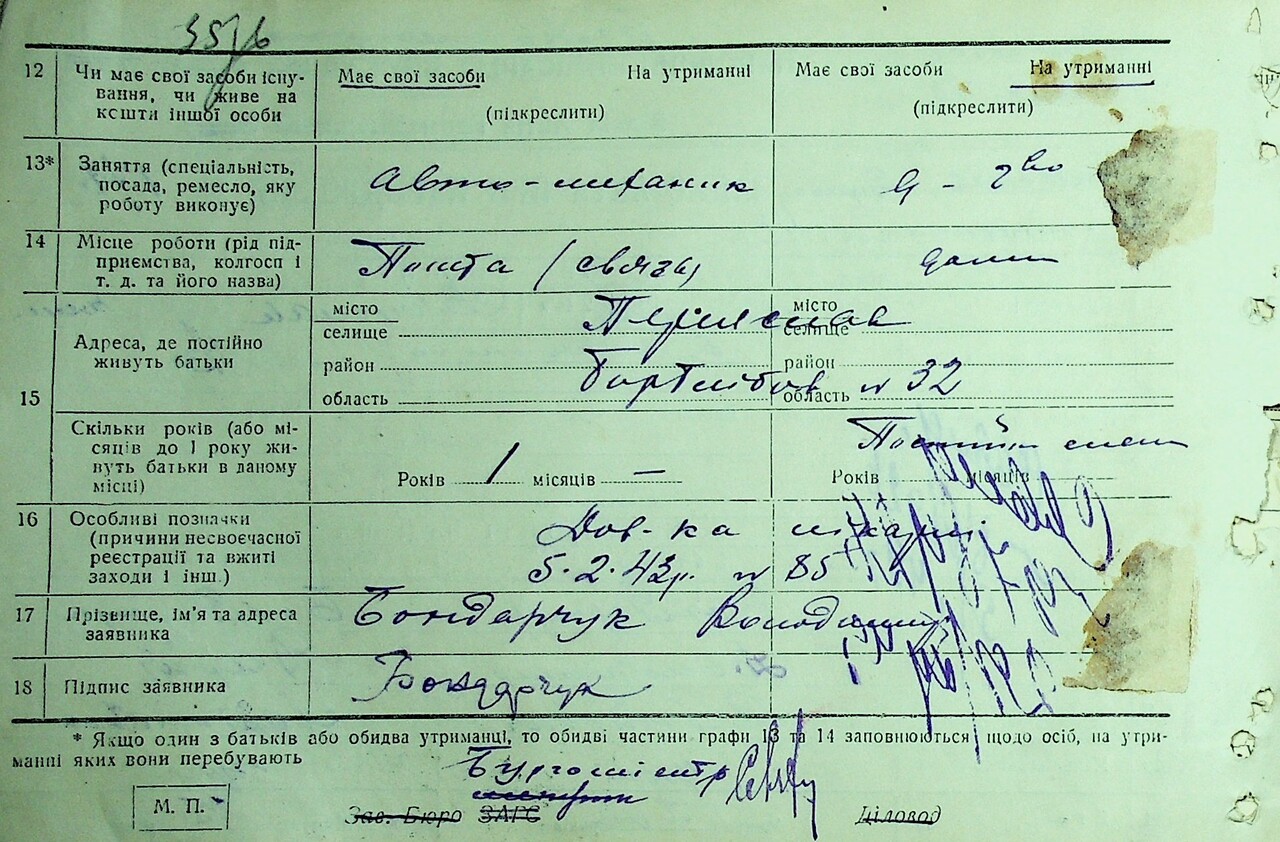 12 Чи має свої засоби існу-
вання, чи живе на
кошти іншої особи
Має свої засоби На утриманні
(підкреслити)
Має свої засоби На утриманні
(підкреслити)
13* Заняття (спеціальність,
посада, ремесло, яку
роботу виконує)
Авто-механик
14 Місце роботи (рід під-
приємства, колгосп і
т. д. та його назва)
Пошта
15 Адреса, де постійно
живуть батьки
місто
селище
район
область
місто
селище
район
область
Переяслав
№ 32
Скільки років (або мі-
сяців до 1 року жи-
вуть батьки в даному
місці)
Років 1 місяців —
Років місяців
16 Особливі позначки
(причини несвоєчасної
реєстрації та вжиті
заходи і інш.)
Дов-ка лікарні
5.2.43р. № 85
17 Прізвище, ім'я та адреса
заявника
Бондарчук Володимир
18 Підпис заявника
Бондарчук
* Якщо один з батьків або обидва утриманці, то обидві частини графи 13 та 14 заповнюються щодо осіб, на утри-
манні яких вони перебувають
Бургомістр
М. П.
Зав. Бюро ЗАГС
Діловод